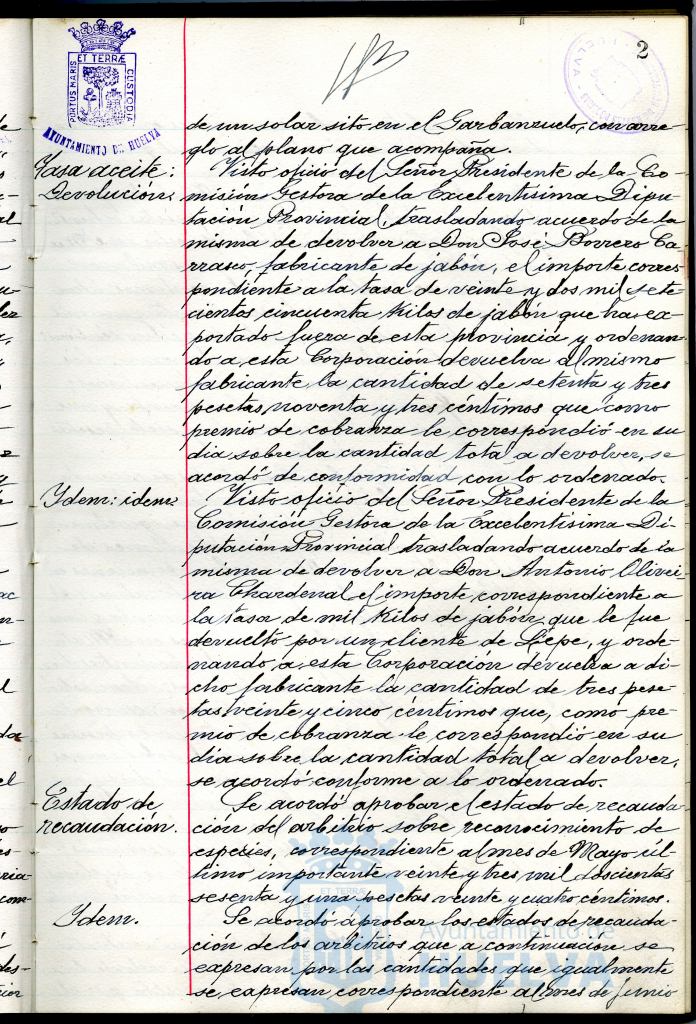 2
PORTUS MARIS ET TERRÆ CUSTODIA
AYUNTAMIENTO DE HUELVA
de un solar sito en el Garbanzuelo, con arre-
glo al plano que acompaña.
Tasa aceite:
Devolución.
Visto oficio del Señor Presidente de la Co-
misión Gestora de la Excelentísima Dipu-
tación Provincial, trasladando acuerdo de la
misma de devolver a Don José Borrero Ca-
rrasco, fabricante de jabón, el importe corres-
pondiente a la tasa de veinte y dos mil sete-
cientos cincuenta kilos de jabón que ha ex-
portado fuera de esta provincia y ordenan-
do a esta Corporación devuelva al mismo
fabricante la cantidad de setenta y tres
pesetas, noventa y tres céntimos que como
premio de cobranza le correspondió en su
dia sobre la cantidad total a devolver, se
acordó de conformidad con lo ordenado.
Ydem: idem.
Visto oficio del Señor Presidente de la
Comisión Gestora de la Excelentísima Di-
putación Provincial trasladando acuerdo de la
misma de devolver a Don Antonio Olivei-
ra Chardenal el importe correspondiente a
la tasa de mil kilos de jabón que le fue
devuelto por un cliente de Lepe, y orde-
nando a esta Corporación devuelva a di-
cho fabricante la cantidad de tres pese-
tas veinte y cinco céntimos que, como pre-
mio de cobranza le correspondió en su
dia sobre la cantidad total a devolver,
se acordó conforme a lo ordenado.
Estado de
recaudación.
Se acordó aprobar el estado de recauda-
ción del arbitrio sobre reconocimiento de
especies, correspondiente al mes de Mayo úl-
timo importante veinte y tres mil doscientas
sesenta y una pesetas veinte y cuatro céntimos.
Ydem.
Se acordó aprobar los estados de recauda-
ción de los arbitrios que a continuación se
expresan por las cantidades que igualmente
se expresan correspondiente al mes de Junio
Ayuntamiento de
HUELVA